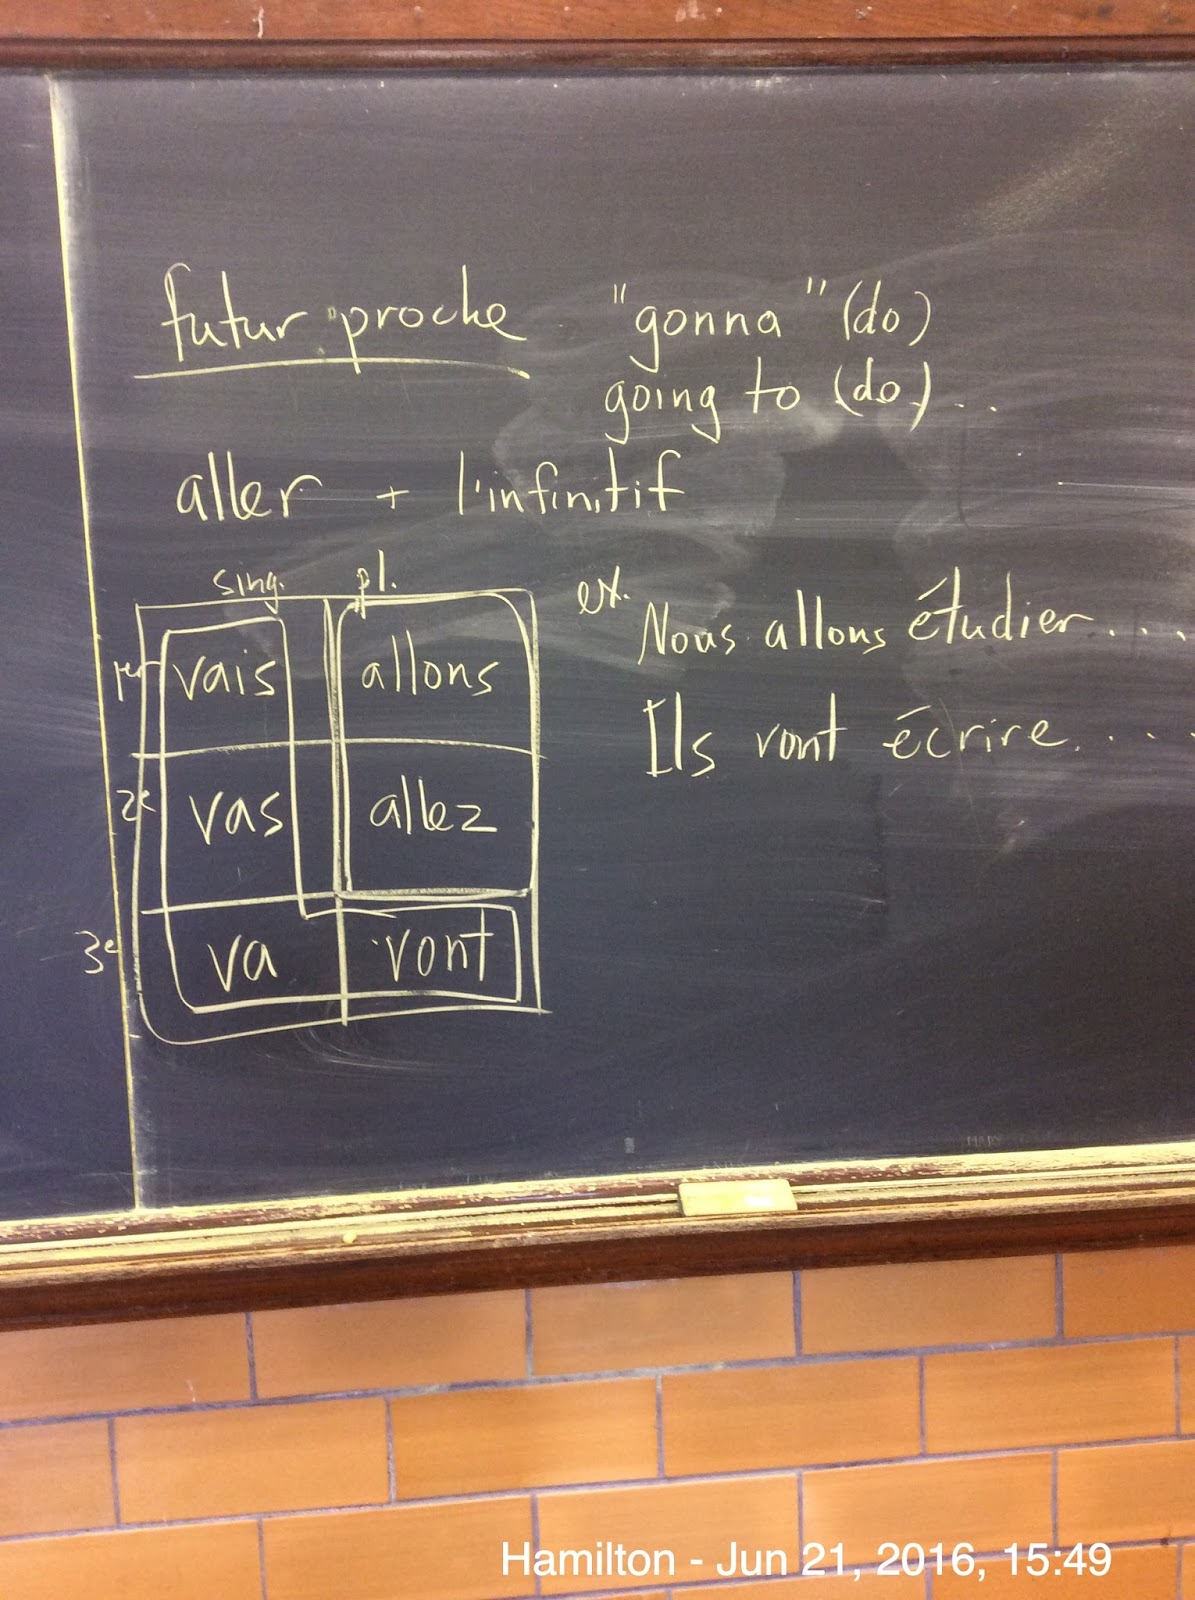 futur proche "gonna" (do)
going to (do)...
aller + l'infinitif
sing. pl.
1er vais allons
2e vas allez
3e va vont
ex. Nous allons étudier....
Ils vont écrire.....
Hamilton - Jun 21, 2016, 15:49